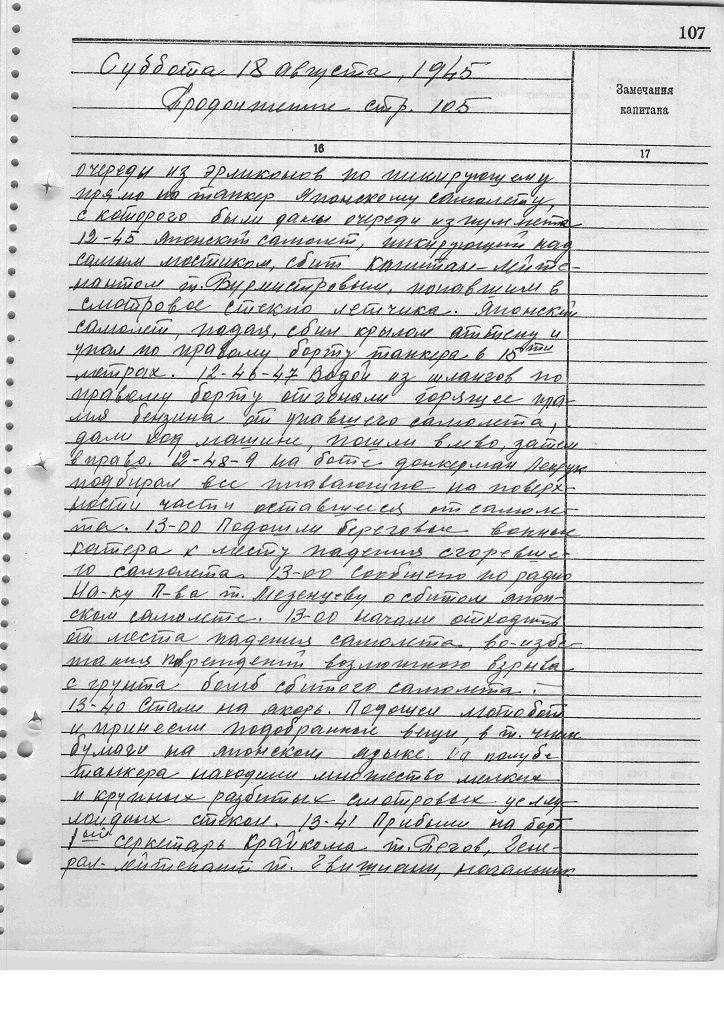 107
Суббота 18 августа, 1945
Продолжение стр. 105
Замечания
капитана
16
17
очереди из эрликонов по пикирующему
прямо на танкер Японскому самолету,
с которого были даны очереди из пулемета
12-45 Японский самолет, пикирующий над
самым мостиком, сбит Капитан-Лейте-
нантом т. Бурмистровым, попавшим в
смотровое стекло летчика. Японский
самолет, падая, сбил крылом антенну и
упал по правому борту танкера в 15ти
метрах. 12-46-47 Водой из шлангов по
правому борту отгоняли горящее пла-
мя бензина от упавшего самолета,
дали ход машине, пошли влево, затем
вправо. 12-48-9 На боте донкерман
подбирал все плавающие на поверх-
ности части оставшиеся от самоле-
та. 13-00 Подошли береговые военные
катера к месту падения сгоревше-
го самолета. 13-00 Сообщено по радио
На-ку П-ва т. Мезенцеву о сбитом япон-
ском самолете. 13-00 Начали отходить
от места падения самолета, во-избе-
жания повреждений возможного взрыва
с грунта бомб сбитого самолета.
13-40 Стали на якорь. Подошел мотобот
и принесли подобранные вещи, в т. числе
бумаги на японском языке. На палубе
танкера находили множество мелких
и крупных разбитых смотровых целлу-
лоидных стекол. 13-41 Прибыли на борт
1ый серкетарь Крайкома т. Пегов, Гене-
рал-лейтенант т. Гвишиани, начальник